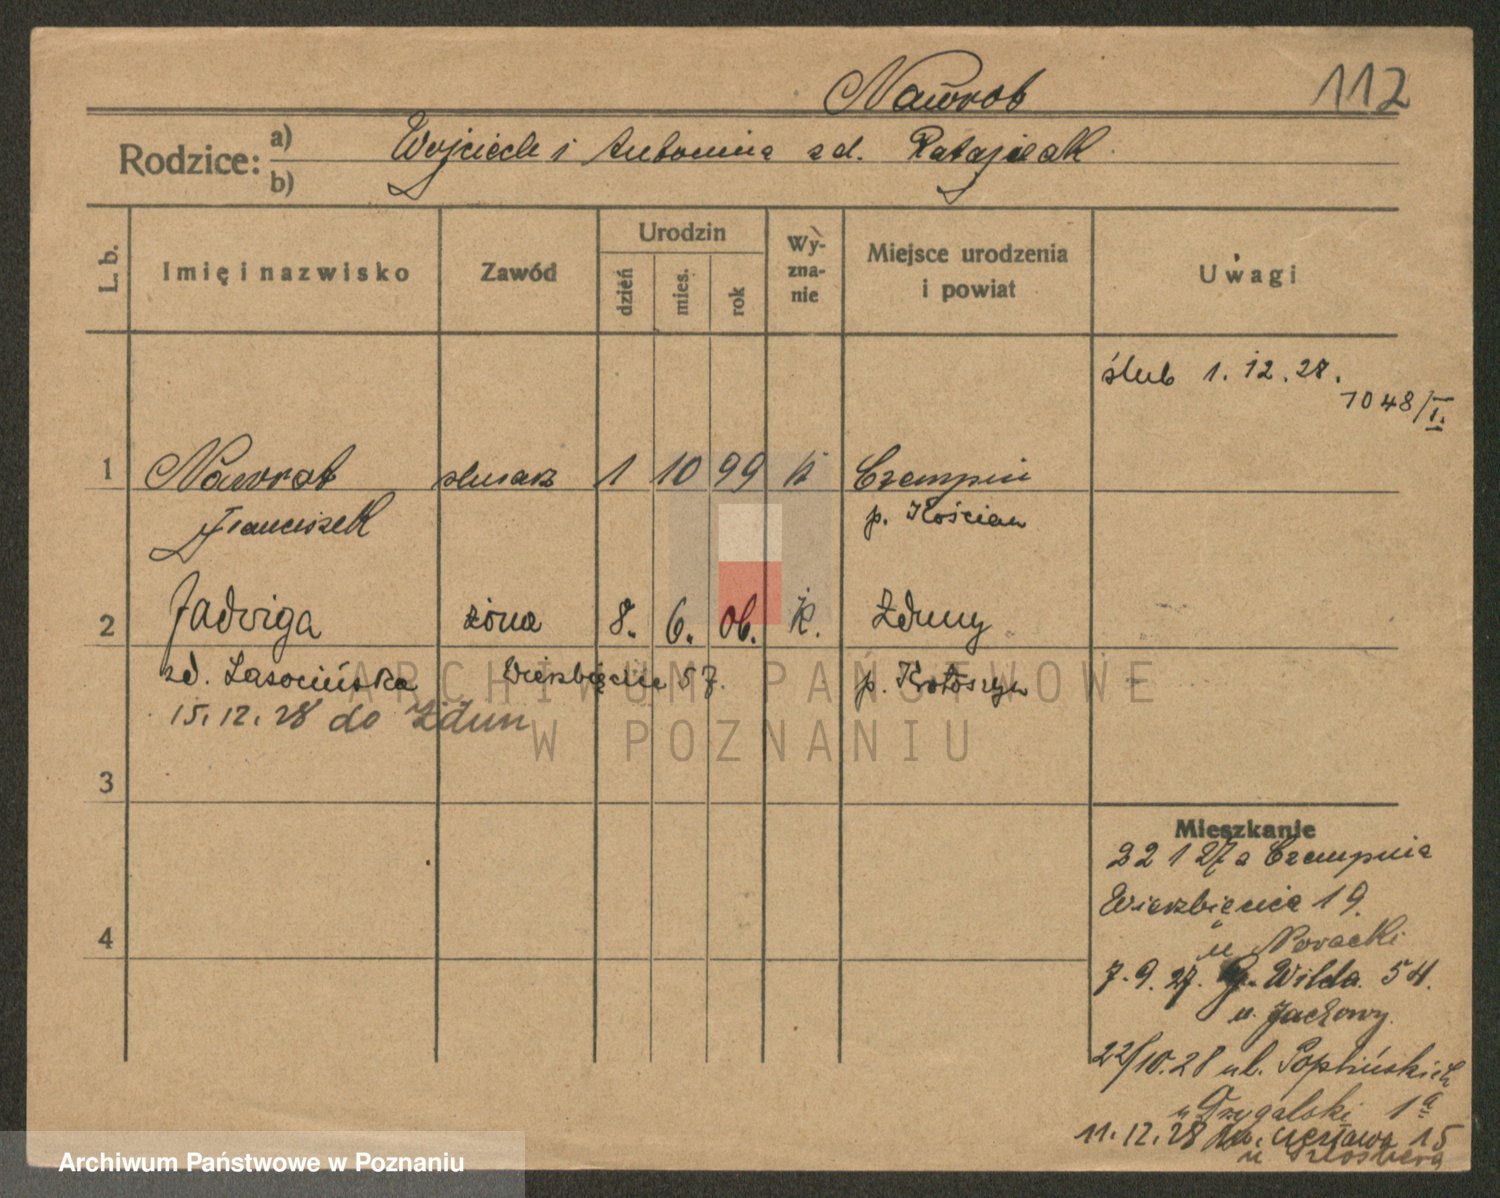 Nawrot
112
Rodzice: a) Wojciech i Antonina zd. Ratajczak
b)
L. b.
Imię i nazwisko
Zawód
Urodzin
dzień
mies.
rok
Wy-
zna-
nie
Miejsce urodzenia
i powiat
Uwagi
ślub 1. 12. 28.
1048/I.
1 Nawrot ślusarz 1 10 99 k Czempiń
Franciszek p. Kościan
2 Jadwiga żona 8. 6. 06. k. Zduny
zd. Lasocińska Wierzbięcice 57. p. Krotoszyn
15. 12. 28 do Zdun
3
4
Mieszkanie
22 1 27 z Czempinia
Wierzbięcice 19.
u
7. 9. 27. Wilda 54.
u.
22/10. 28 ul. Poplińskich
u Drygalski 1a
11. 12. 28 15
u
ARCHIWUM PAŃSTWOWE
W POZNANIU
Archiwum Państwowe w Poznaniu